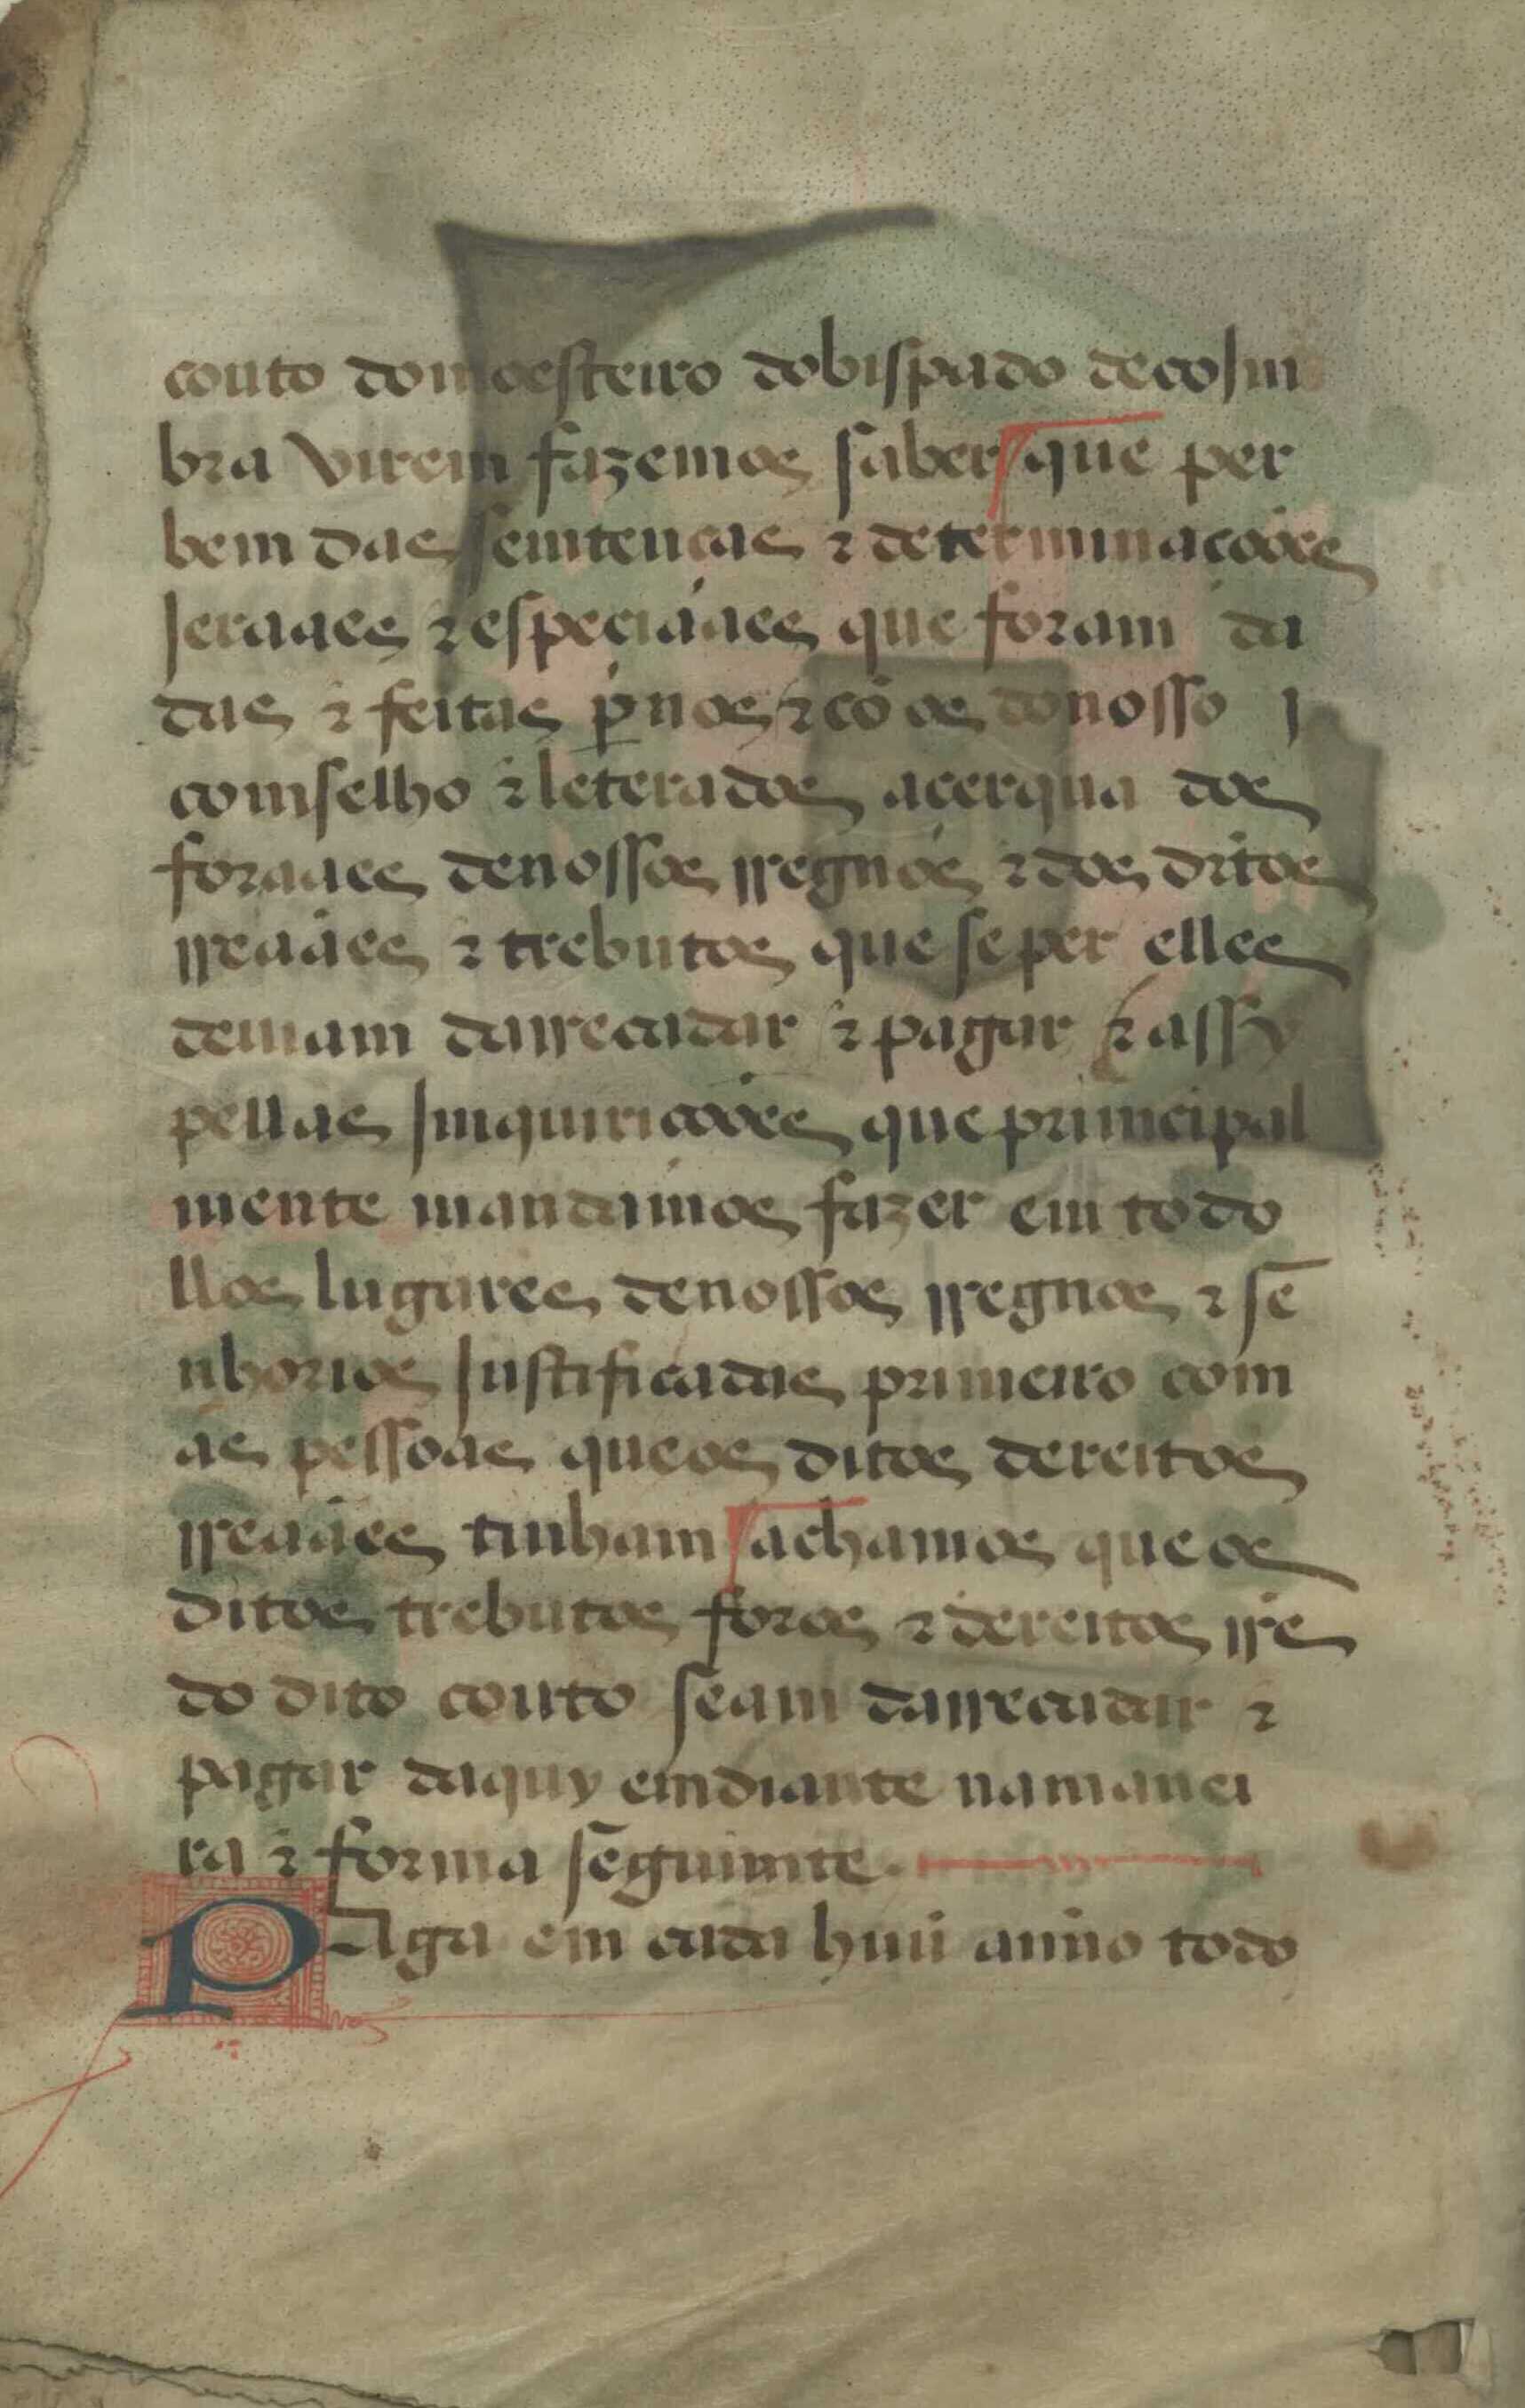 couto domoesteiro dobispado decoJm
bra virem fazemos saber que per
bem das semtenças ⁊ determinaçoões
Jeraaes ⁊ espeçiáaes que foram da
das ⁊ feitas p̱ nos ⁊ cõ os donosso
comselho ⁊ leterados açerqua dos
foraaes denossos rregnos ⁊ dos dr̃tos
rreaães ⁊ trebutos que seper elles
deuiam darrecadar ⁊ pagar ⁊ assy
pellas Jmquiriçoões que primçipal
mente mandamos fazer em todo
llos lugares denossos rregnos ⁊ sẽ
nhorios Justificadas primeiro com
ás pessoas queos ditos dereitos
rreaães tinham achamos que os
ditos trebutos foros ⁊ dereitos rrẽ
do dito couto seam darrecadar ⁊
pagar daquy emdiante namanei
ra ⁊ forma seguimte.
PAga em cada huũ anno todo